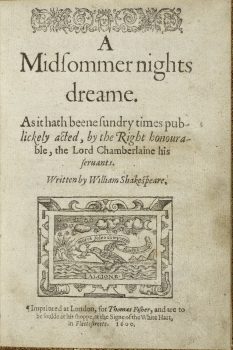 A
Midsommer nights
dreame.
As it hath beene sundry times pub-
lickely acted, by the Right honoura-
ble, the Lord Chamberlaine his
seruants.
Written by William Shakespeare.
¶ Imprinted at London, for Thomas Fisher, and are to
be soulde at his shoppe, at the Signe of the White Hart,
in Fleetestreete. 1600.